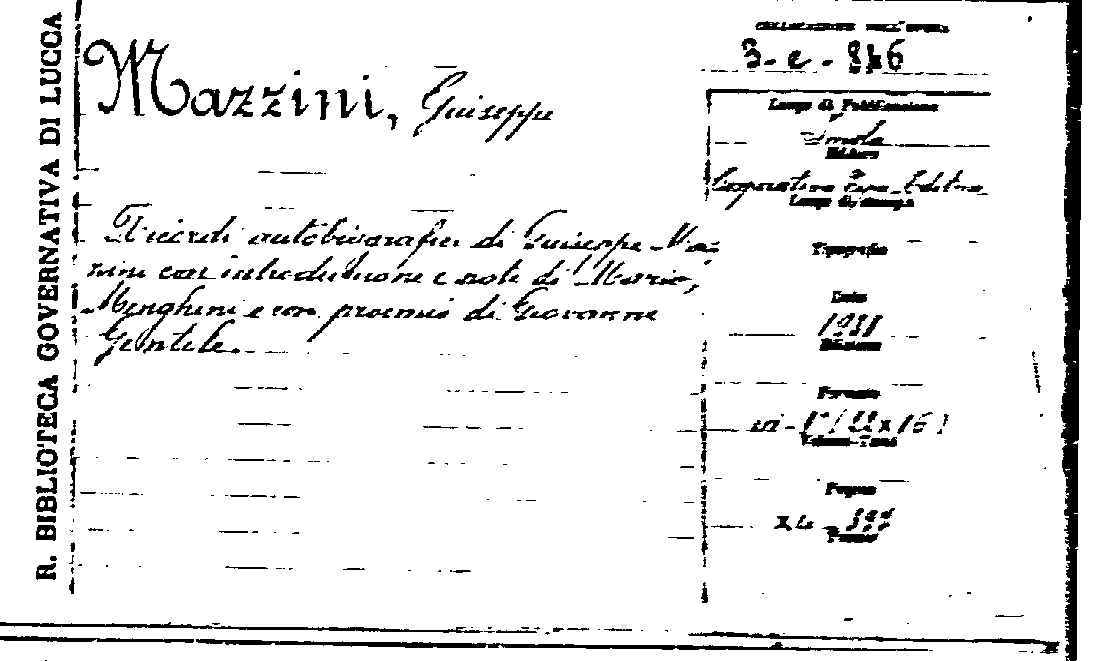 R. BIBLIOTECA GOVERNATIVA DI LUCCA
Mazzini, Giuseppe
Ricordi autobiografici di Giuseppe Maz
zini con introduzione e note di Mario
Menghini e con proemio di Giovanni
Gentile.
COLLOCAZIONE DELL'OPERA
3-e-
Luogo di Pubblicazione
Imola
Editore
Cooperativa Edit
Luogo di stampa
Tipografia
Data
1938
Edizione
Formato
in-8° (22x16)
Volume-Tomi
Pagine